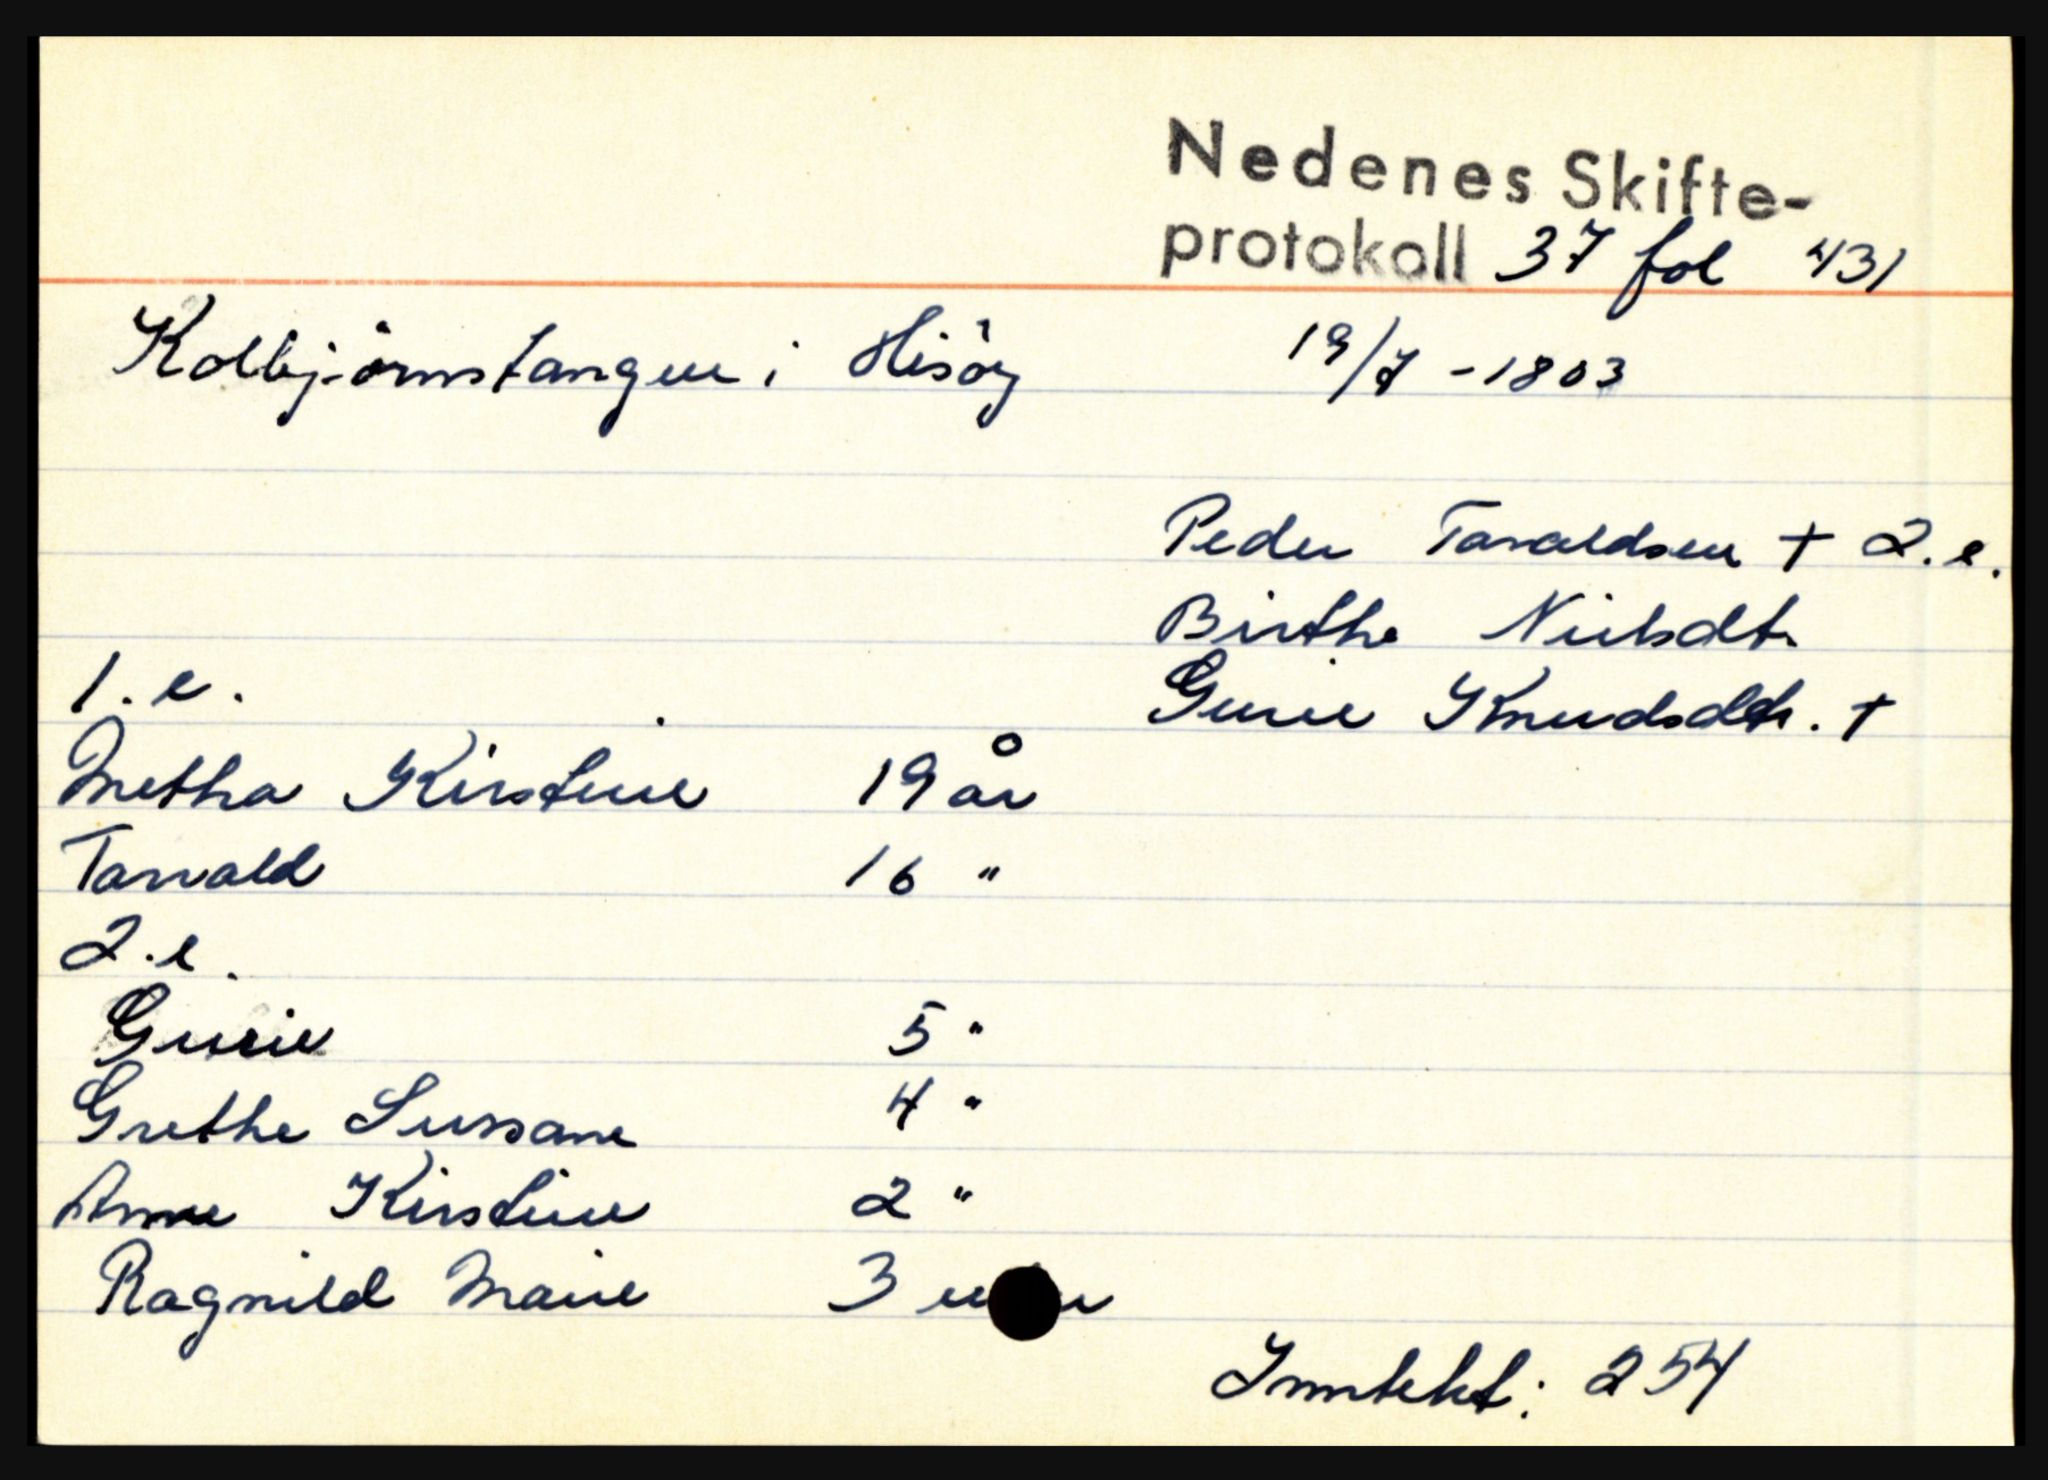 Nedenes Skifte-
protokoll 37 fol 431
Kolbjörnstangen i Hisöy 19/7 - 1803
Peder Tarvaldsen + 2.e.
Birthe Nielsdtr.
1.e. Gurie Knudsdtr. +
Metha Kirstine 19 år
Tarvald 16 "
2.e.
Gurie 5 "
Grethe Sussane 4 "
Anne Kirstine 2 "
Ragnild Marie 3
Inntekt: 254